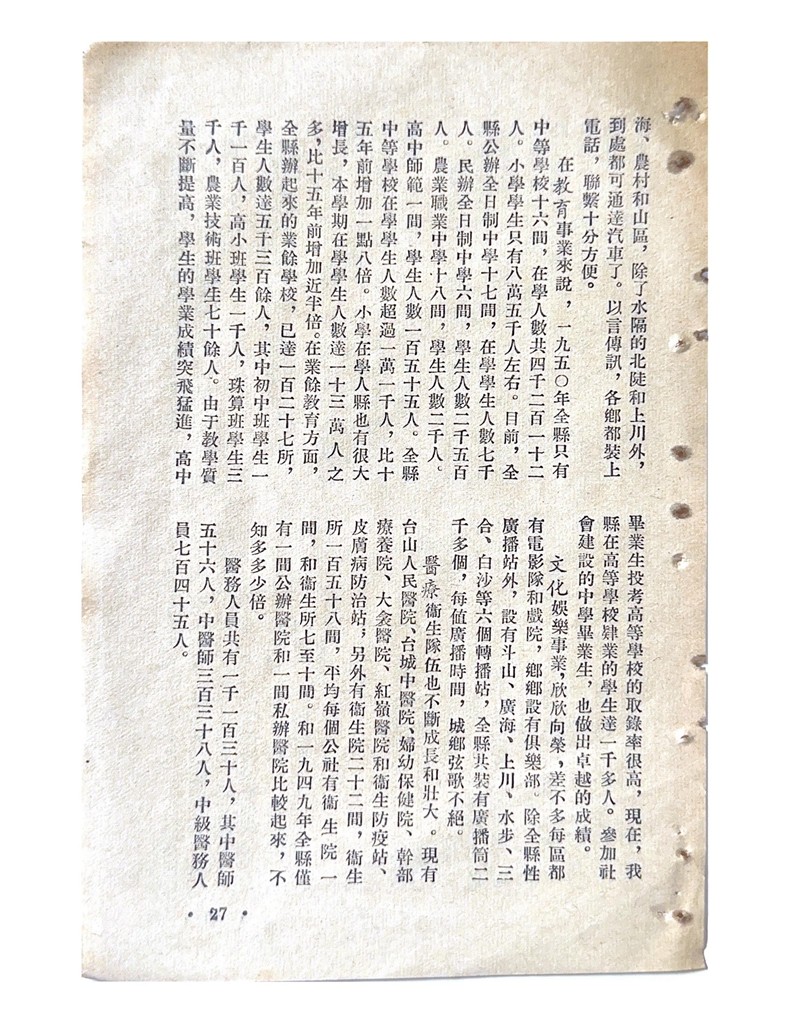 海、農村和山區，除了水隔的北陡和上川外，
到處都可通達汽車了。以言傳訊，各鄉都裝上
電話，聯繫十分方便。
在教育事業來說，一九五〇年全縣只有
中等學校十六間，在學人數共四千二百一十二
人。小學學生只有八萬五千人左右。目前，全
縣公辦全日制中學十七間，在學學生人數七千
人。民辦全日制中學六間，學生人數二千五百
人。農業職業中學十八間，學生人數二千人。
高中師範一間，學生人數一百五十五人。全縣
中等學校在學學生人數超過一萬一千人，比十
五年前增加一點八倍。小學在學人縣也有很大
增長，本學期在學學生人數達一十三萬人之
多，比十五年前增加近半倍。在業餘教育方面，
全縣辦起來的業餘學校，已達一百二十七所，
學生人數達五千三百餘人，其中初中班學生一
千一百人，高小班學生一千人，珠算班學生三
千人，農業技術班學生七十餘人。由于教學質
量不斷提高，學生的學業成績突飛猛進，高中
畢業生投考高等學校的取錄率很高，現在，我
縣在高等學校肄業的學生達一千多人。參加社
會建設的中學畢業生，也做出卓越的成績。
文化娛樂事業，欣欣向榮，差不多每區都
有電影隊和戲院，鄉鄉設有俱樂部。除全縣性
廣播站外，設有斗山、廣海、上川、水步、三
合、白沙等六個轉播站，全縣共裝有廣播筒二
千多個，每值廣播時間，城鄉弦歌不絕。
醫療衞生隊伍也不斷成長和壯大。現有
台山人民醫院、台城中醫院、婦幼保健院、幹部
療養院、大衾醫院、紅嶺醫院和衞生防疫站、
皮膚病防治站；另外有衞生院二十二間，衞生
所一百五十八間，平均每個公社有衞生院一
間，和衞生所七至十間。和一九四九年全縣僅
有一間公辦醫院和一間私辦醫院比較起來，不
知多多少倍。
醫務人員共有一千一百三十人，其中醫師
五十六人，中醫師三百三十八人，中級醫務人
員七百四十五人。
• 27 •